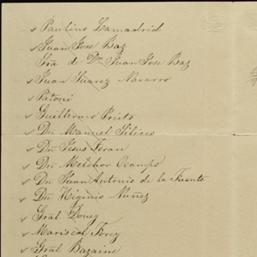 Paulino Lamadrid
Juan José Baz
Sra de Dn Juan José Baz
Juan Suarez Navarro
Patoni
Guillermo Prieto
Dn Manuel Siliceo
Dn Jesus Teran
Dn Melchor Ocampo
Dn Juan Antonio de la Fuente
Dn Higinio Nuñez
Gral Douay
Mariscal Forey
Gral Bazaine